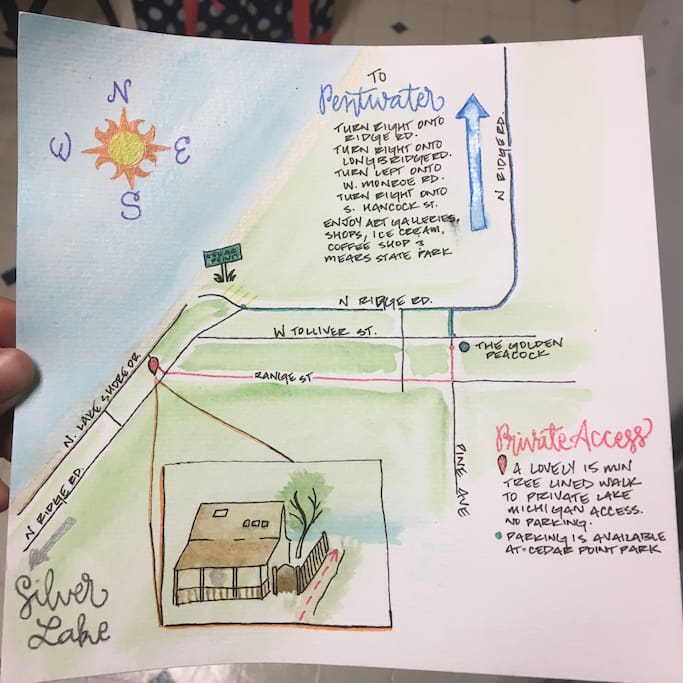 N
W
E
S
TO
Pentwater
TURN RIGHT ONTO
RIDGE RD.
TURN RIGHT ONTO
LONGBRIDGE RD.
TURN LEFT ONTO
W. MONROE RD.
TURN RIGHT ONTO
S. HANCOCK ST.
ENJOY ART GALLERIES,
SHOPS, ICE CREAM,
COFFEE SHOP &
MEARS STATE PARK
N RIDGE RD.
CEDAR
POINT
N RIDGE RD.
W TOLLIVER ST.
THE GOLDEN
PEACOCK
N. LAKE SHORE DR
RANGE ST
PINE AVE
N RIDGE RD.
Private Access
A LOVELY 15 MIN
TREE LINED WALK
TO PRIVATE LAKE
MICHIGAN ACCESS.
NO PARKING.
PARKING IS AVAILABLE
AT CEDAR POINT PARK
Silver
Lake